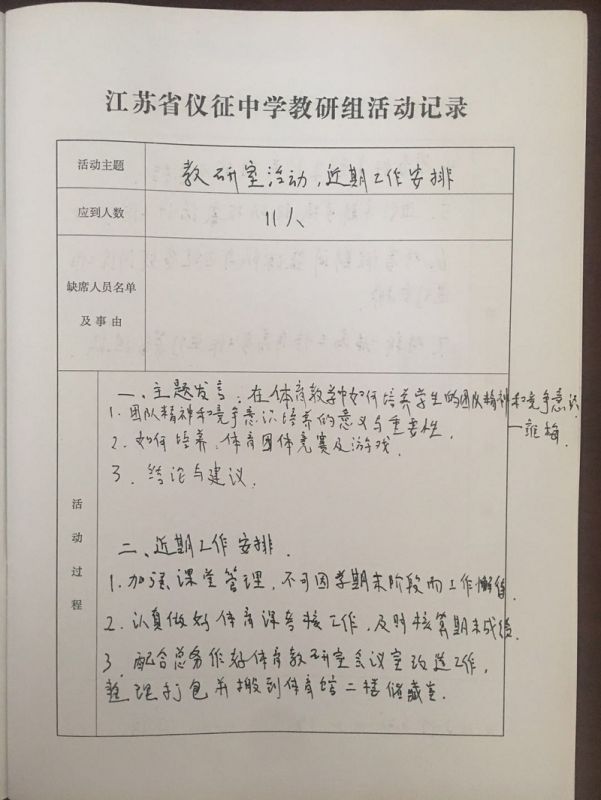 江苏省仪征中学教研组活动记录
活动主题
教研室活动，近期工作安排
应到人数
11人
缺席人员名单
及事由
活动过程
一、主题发言：在体育教学中如何培养学生的团队精神和竞争意识
1. 团队精神和竞争意识培养的意义与重要性．
——崔梅
2. 如何培养，体育团体竞赛及游戏．
3. 结论与建议．
二、近期工作安排．
1. 加强课堂管理，不可因学期末阶段而工作懈怠．
2. 认真做好体育课考核工作，及时核算期末成绩．
3. 配合总务作好体育教研室会议室改造工作，
整理打包并搬到体育馆二楼储藏室．